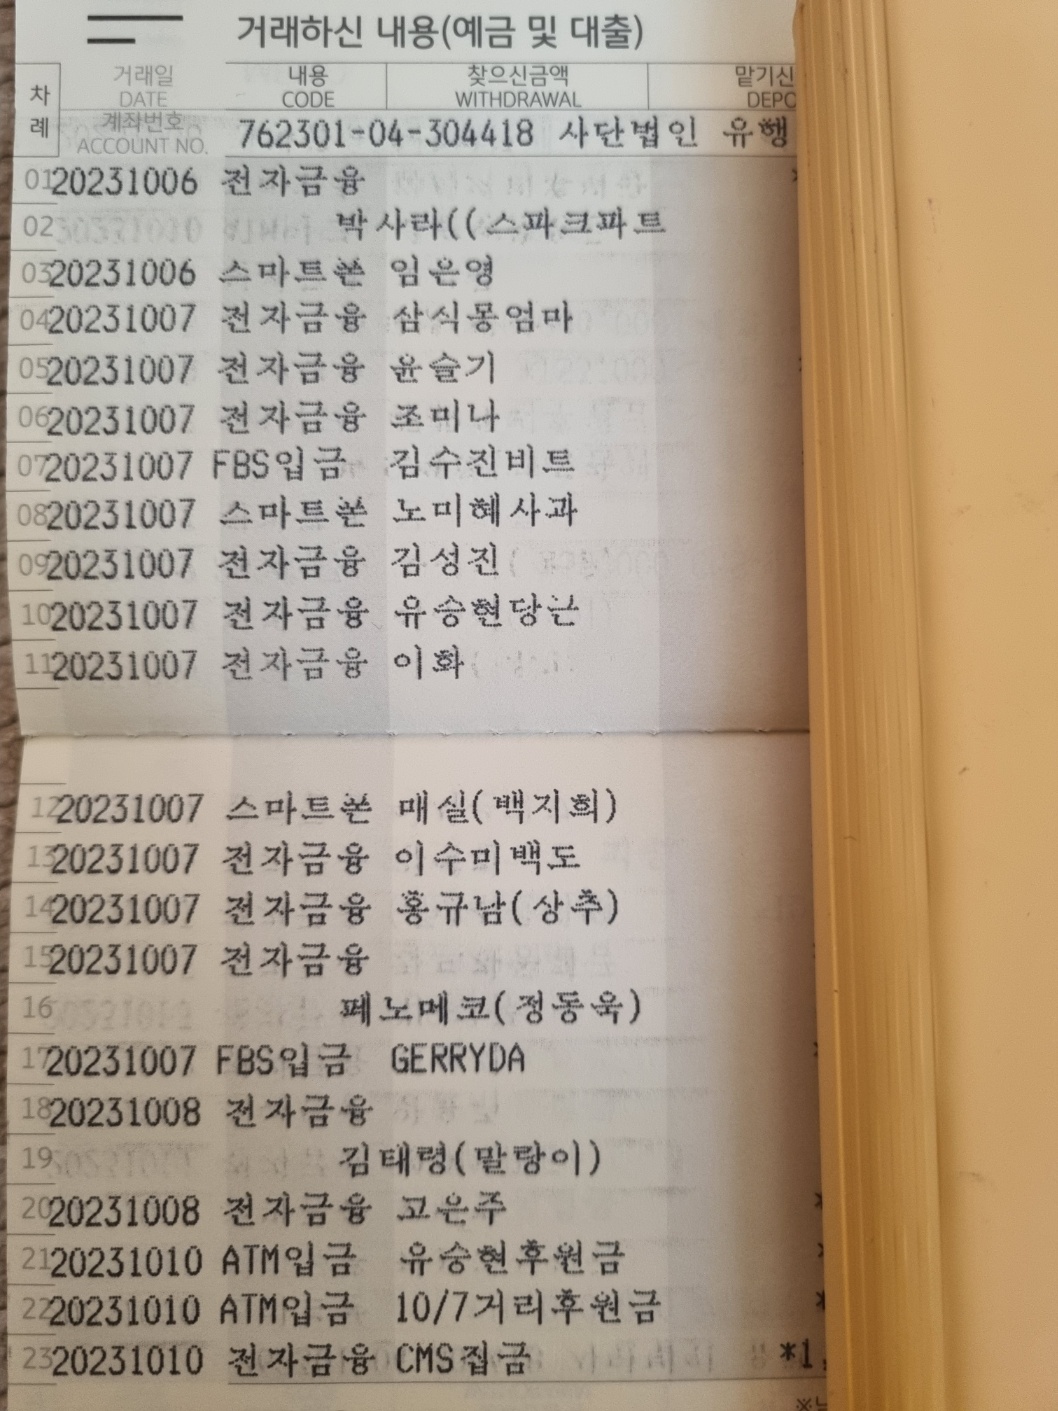 거래하신 내용(예금 및 대출)
차례
거래일 내용 찾으신금액 맡기신
DATE CODE WITHDRAWAL DEPO
계좌번호
ACCOUNT NO. 762301-04-304418 사단법인 유행
01 20231006 전자금융
02 박사라((스파크파트
03 20231006 스마트폰 임은영
04 20231007 전자금융 삼식몽엄마
05 20231007 전자금융 윤슬기
06 20231007 전자금융 조미나
07 20231007 FBS입금 김수진비트
08 20231007 스마트폰 노미혜사과
09 20231007 전자금융 김성진
10 20231007 전자금융 유승현당근
11 20231007 전자금융 이화
12 20231007 스마트폰 매실(백지희)
13 20231007 전자금융 이수미백도
14 20231007 전자금융 홍규남(상추)
15 20231007 전자금융
16 페노메코(정동욱)
17 20231007 FBS입금 GERRYDA
18 20231008 전자금융
19 김태령(말랑이)
20 20231008 전자금융 고은주
21 20231010 ATM입금 유승현후원금
22 20231010 ATM입금 10/7거리후원금
23 20231010 전자금융 CMS집금 *1,